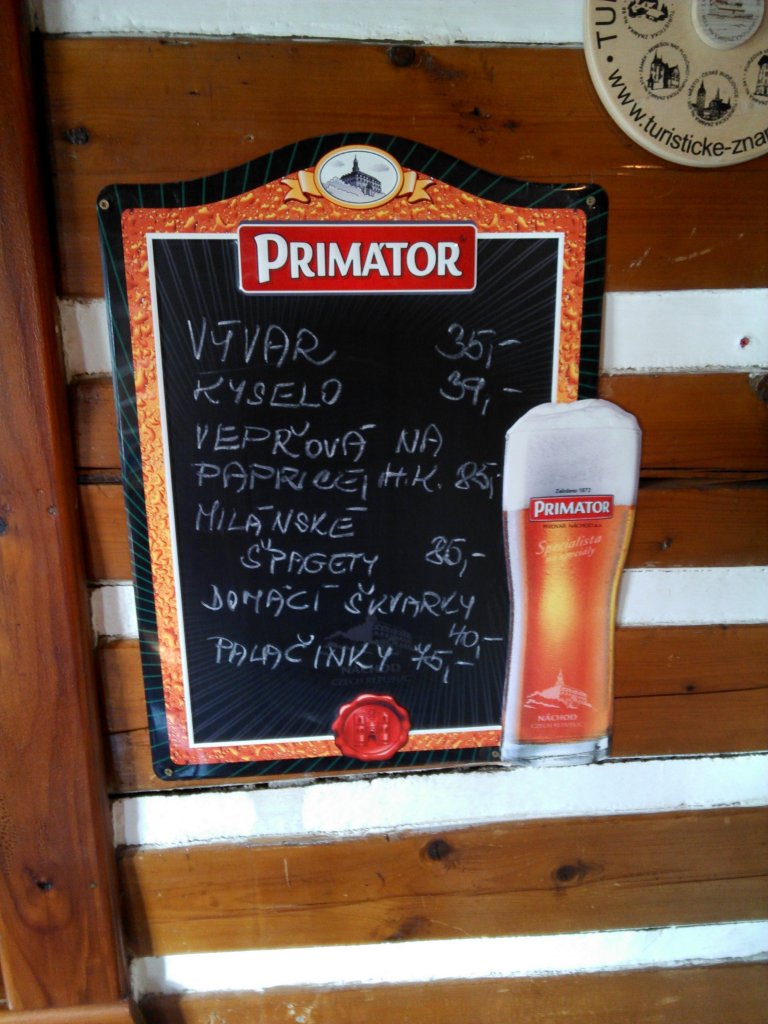 • TU
www.turisticke-znam
PRIMÁTOR
VÝVAR 35,-
KYSELO 39,-
VEPŘOVÁ NA
PAPRICE, H.K. 85,-
MILÁNSKÉ
ŠPAGETY 85,-
DOMÁCÍ ŠKVARKY
40,-
PALAČINKY 75,-
NÁCHOD
CZECH REPUBLIC
Založeno 1872
PRIMÁTOR
PIVOVAR NÁCHOD a.s.
Specialista
na speciály
NÁCHOD
CZECH REPUBLIC